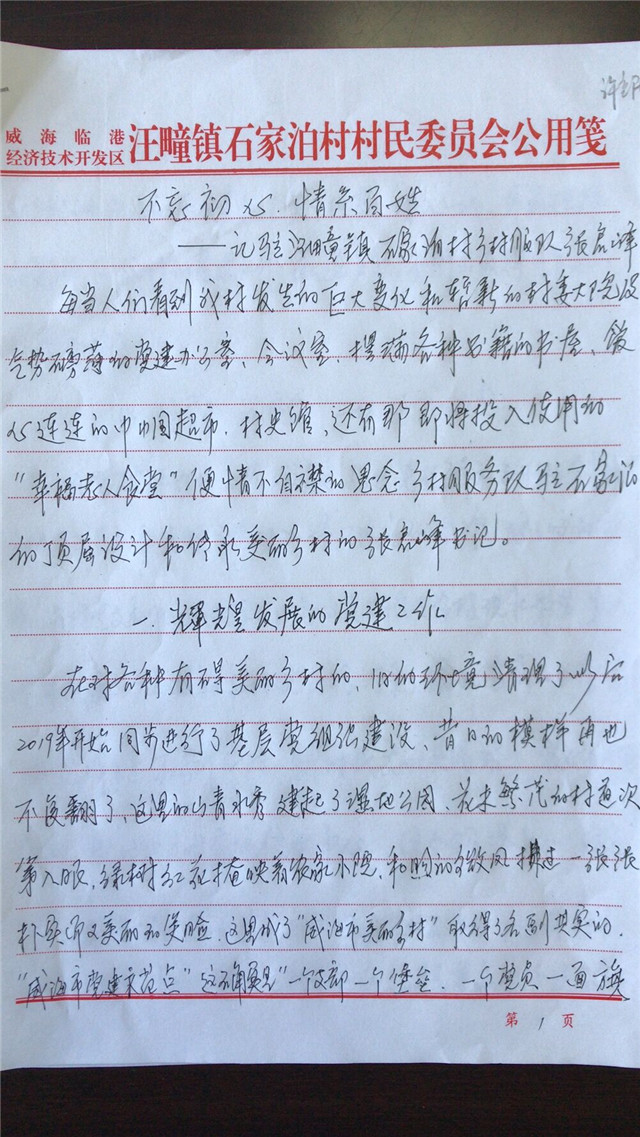 许主P
威海临港
经济技术开发区 汪疃镇石家泊村村民委员会公用笺
不忘初心.情系百姓
——记驻汪疃镇石家泊村乡村服队张启峰
每当人们看到我村发生的巨大变化和崭新的村委大院及
气势磅薄的党建办公室、会议室、摆满各种书籍的书屋、
心连连的巾帼超市.村史馆、还有那即将投入使用的
“幸福老人食堂”便情不自禁的思念乡村服务队驻石家泊
的顶层设计和美丽乡村的张启峰书记。
一.辉煌发展的党建工作
在对各种有碍美丽乡村的,旧的环境清理了以后
2019年开始同步进行了基层党组织建设、昔日的模样再也
不复翻了、这里的山青水秀建起了湿地公园、花木繁茂的村道次
第入眼,绿树红花掩映着农家小院,和煦的微风拂过一张张
朴实而又美丽的笑脸.这里成了“威海市美丽乡村”取得了名副其实的.
“威海市党建示范点”这确实是“一个支部一个堡垒.一个党员一面旗
第 1 页